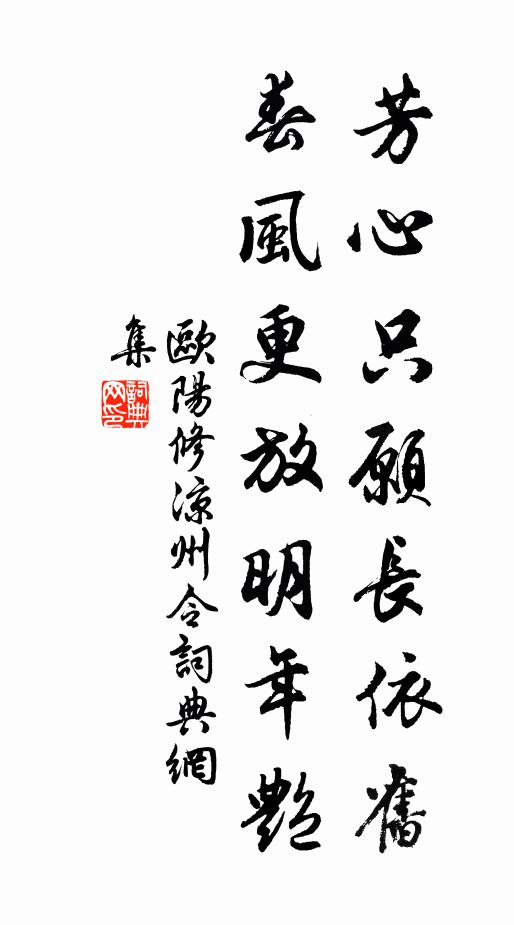 芳心只願長依舊
春風更放明年艷
歐陽修涼州令詞典網
集
詞典
网印